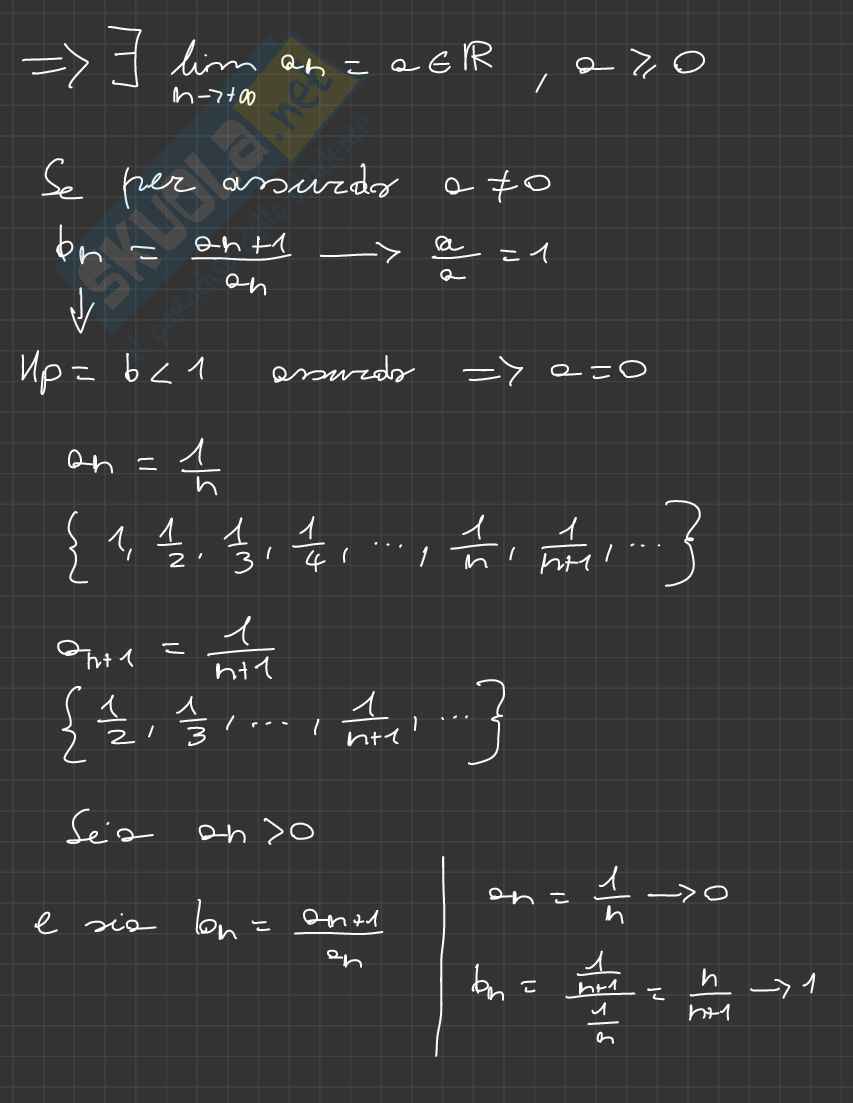 => ∃ lim an = a ∈ ℝ , a ≥ 0
n→+∞
Se per assurdo a ≠ 0
bn = an+1/an → a/a = 1
↓
Hp = b < 1 assurdo => a = 0
an = 1/n
{ 1, 1/2, 1/3, 1/4, ..., 1/n, 1/n+1, ... }
an+1 = 1/n+1
{ 1/2, 1/3, ..., 1/n+1, ... }
Sia an > 0
e sia bn = an+1/an
an = 1/n → 0
bn = 1/n+1 / 1/n = n/n+1 → 1
SKUOLA.net